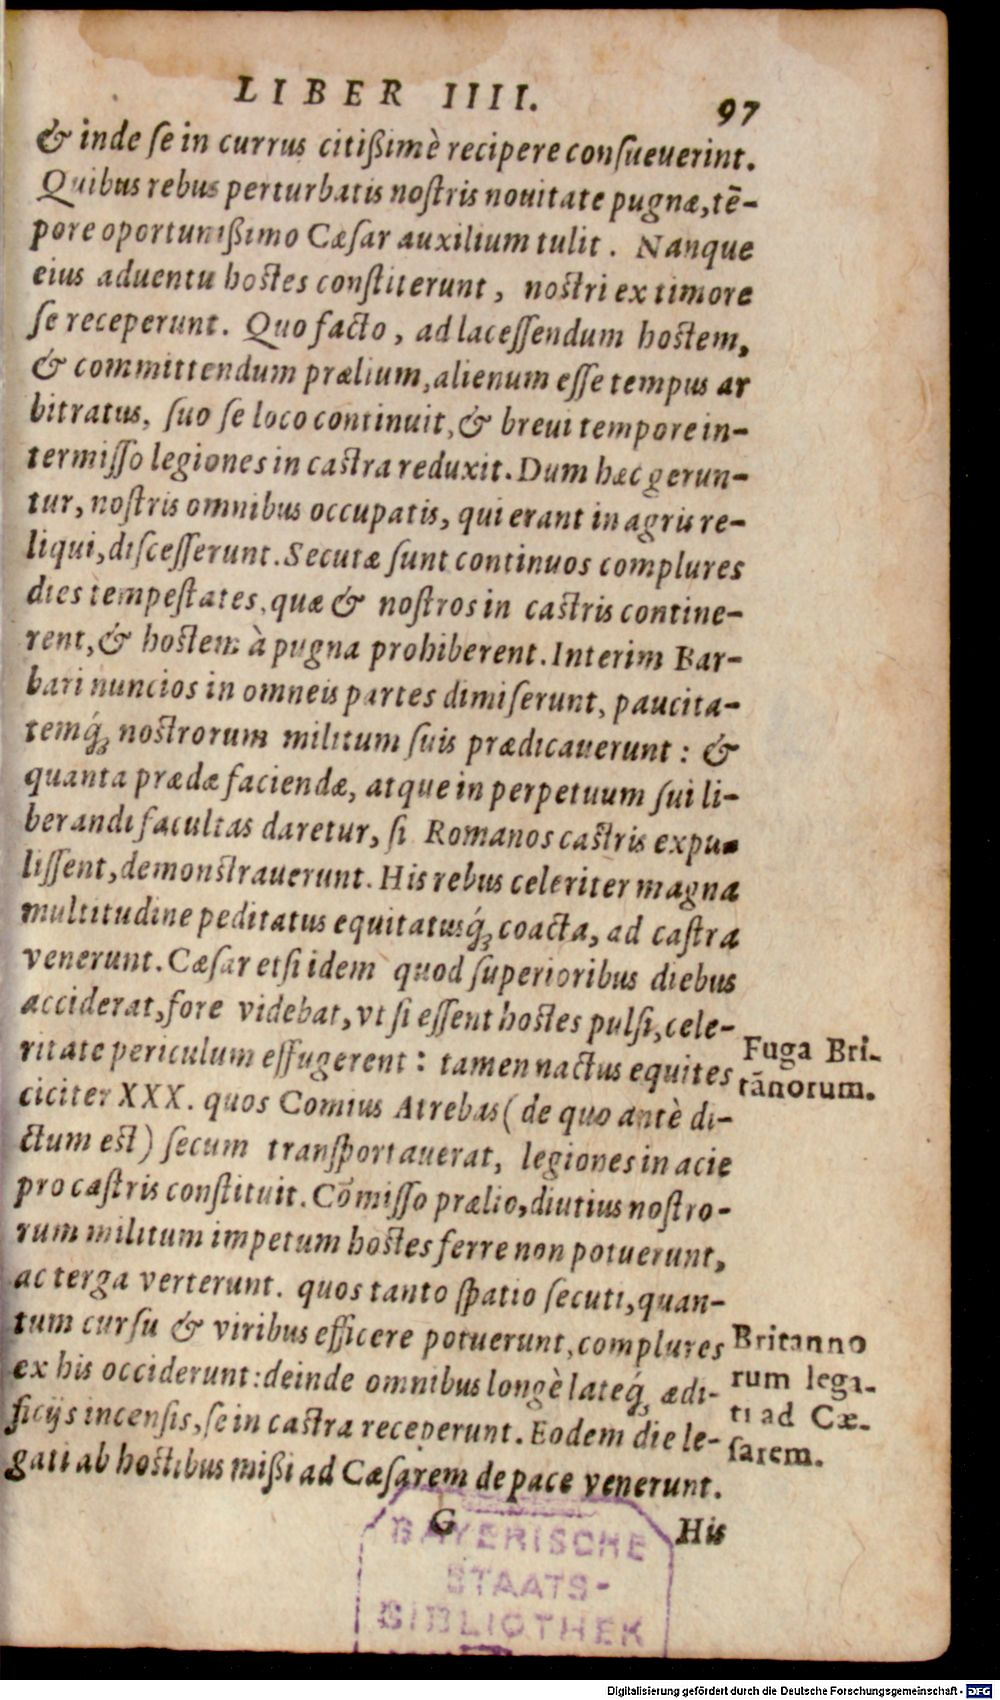 LIBER IIII. 97
& inde ſe in currus citißimè recipere conſueuerint.
Quibus rebus perturbatis noſtris nouitate pugnæ, tē-
pore oportunißimo Cæſar auxilium tulit. Nanque
eius aduentu hoſtes conſtiterunt, noſtri ex timore
ſe receperunt. Quo facto, ad laceſſendum hoſtem,
& committendum prælium, alienum eſſe tempus ar
bitratus, ſuo ſe loco continuit, & breui tempore in-
termiſſo legiones in caſtra reduxit. Dum hæc gerun-
tur, noſtris omnibus occupatis, qui erant in agris re-
liqui, diſceſſerunt. Secutæ ſunt continuos complures
dies tempeſtates, quæ & noſtros in caſtris contine-
rent, & hoſtem à pugna prohiberent. Interim Bar-
bari nuncios in omneis partes dimiſerunt, paucita-
temq́; noſtrorum militum ſuis prædicauerunt: &
quanta prædæ faciendæ, atque in perpetuum ſui li-
berandi facultas daretur, ſi Romanos caſtris expu-
liſſent, demonſtrauerunt. His rebus celeriter magna
multitudine peditatus equitatusq́; coacta, ad caſtra
venerunt. Cæſar etſi idem quod ſuperioribus diebus
acciderat, fore videbat, vt ſi eſſent hoſtes pulſi, cele-
ritate periculum effugerent: tamen nactus equites
ciciter XXX. quos Comius Atrebas (de quo antè di-
ctum eſt) ſecum tranſportauerat, legiones in acie
pro caſtris conſtituit. Cōmiſſo prælio, diutius noſtro-
rum militum impetum hoſtes ferre non potuerunt,
ac terga verterunt. quos tanto ſpatio ſecuti, quan-
tum curſu & viribus efficere potuerunt, complures
ex his occiderunt: deinde omnibus longè lateq́; ædi-
ficijs incenſis, ſe in caſtra receperunt. Eodem die le-
gati ab hoſtibus mißi ad Cæſarem de pace venerunt.
Fuga Bri-
tānorum.
Britanno
rum lega-
ti ad Cæ-
ſarem.
G His
BAYERISCHE
STAATS-
BIBLIOTHEK
Digitalisierung gefördert durch die Deutsche Forschungsgemeinschaft - DFG